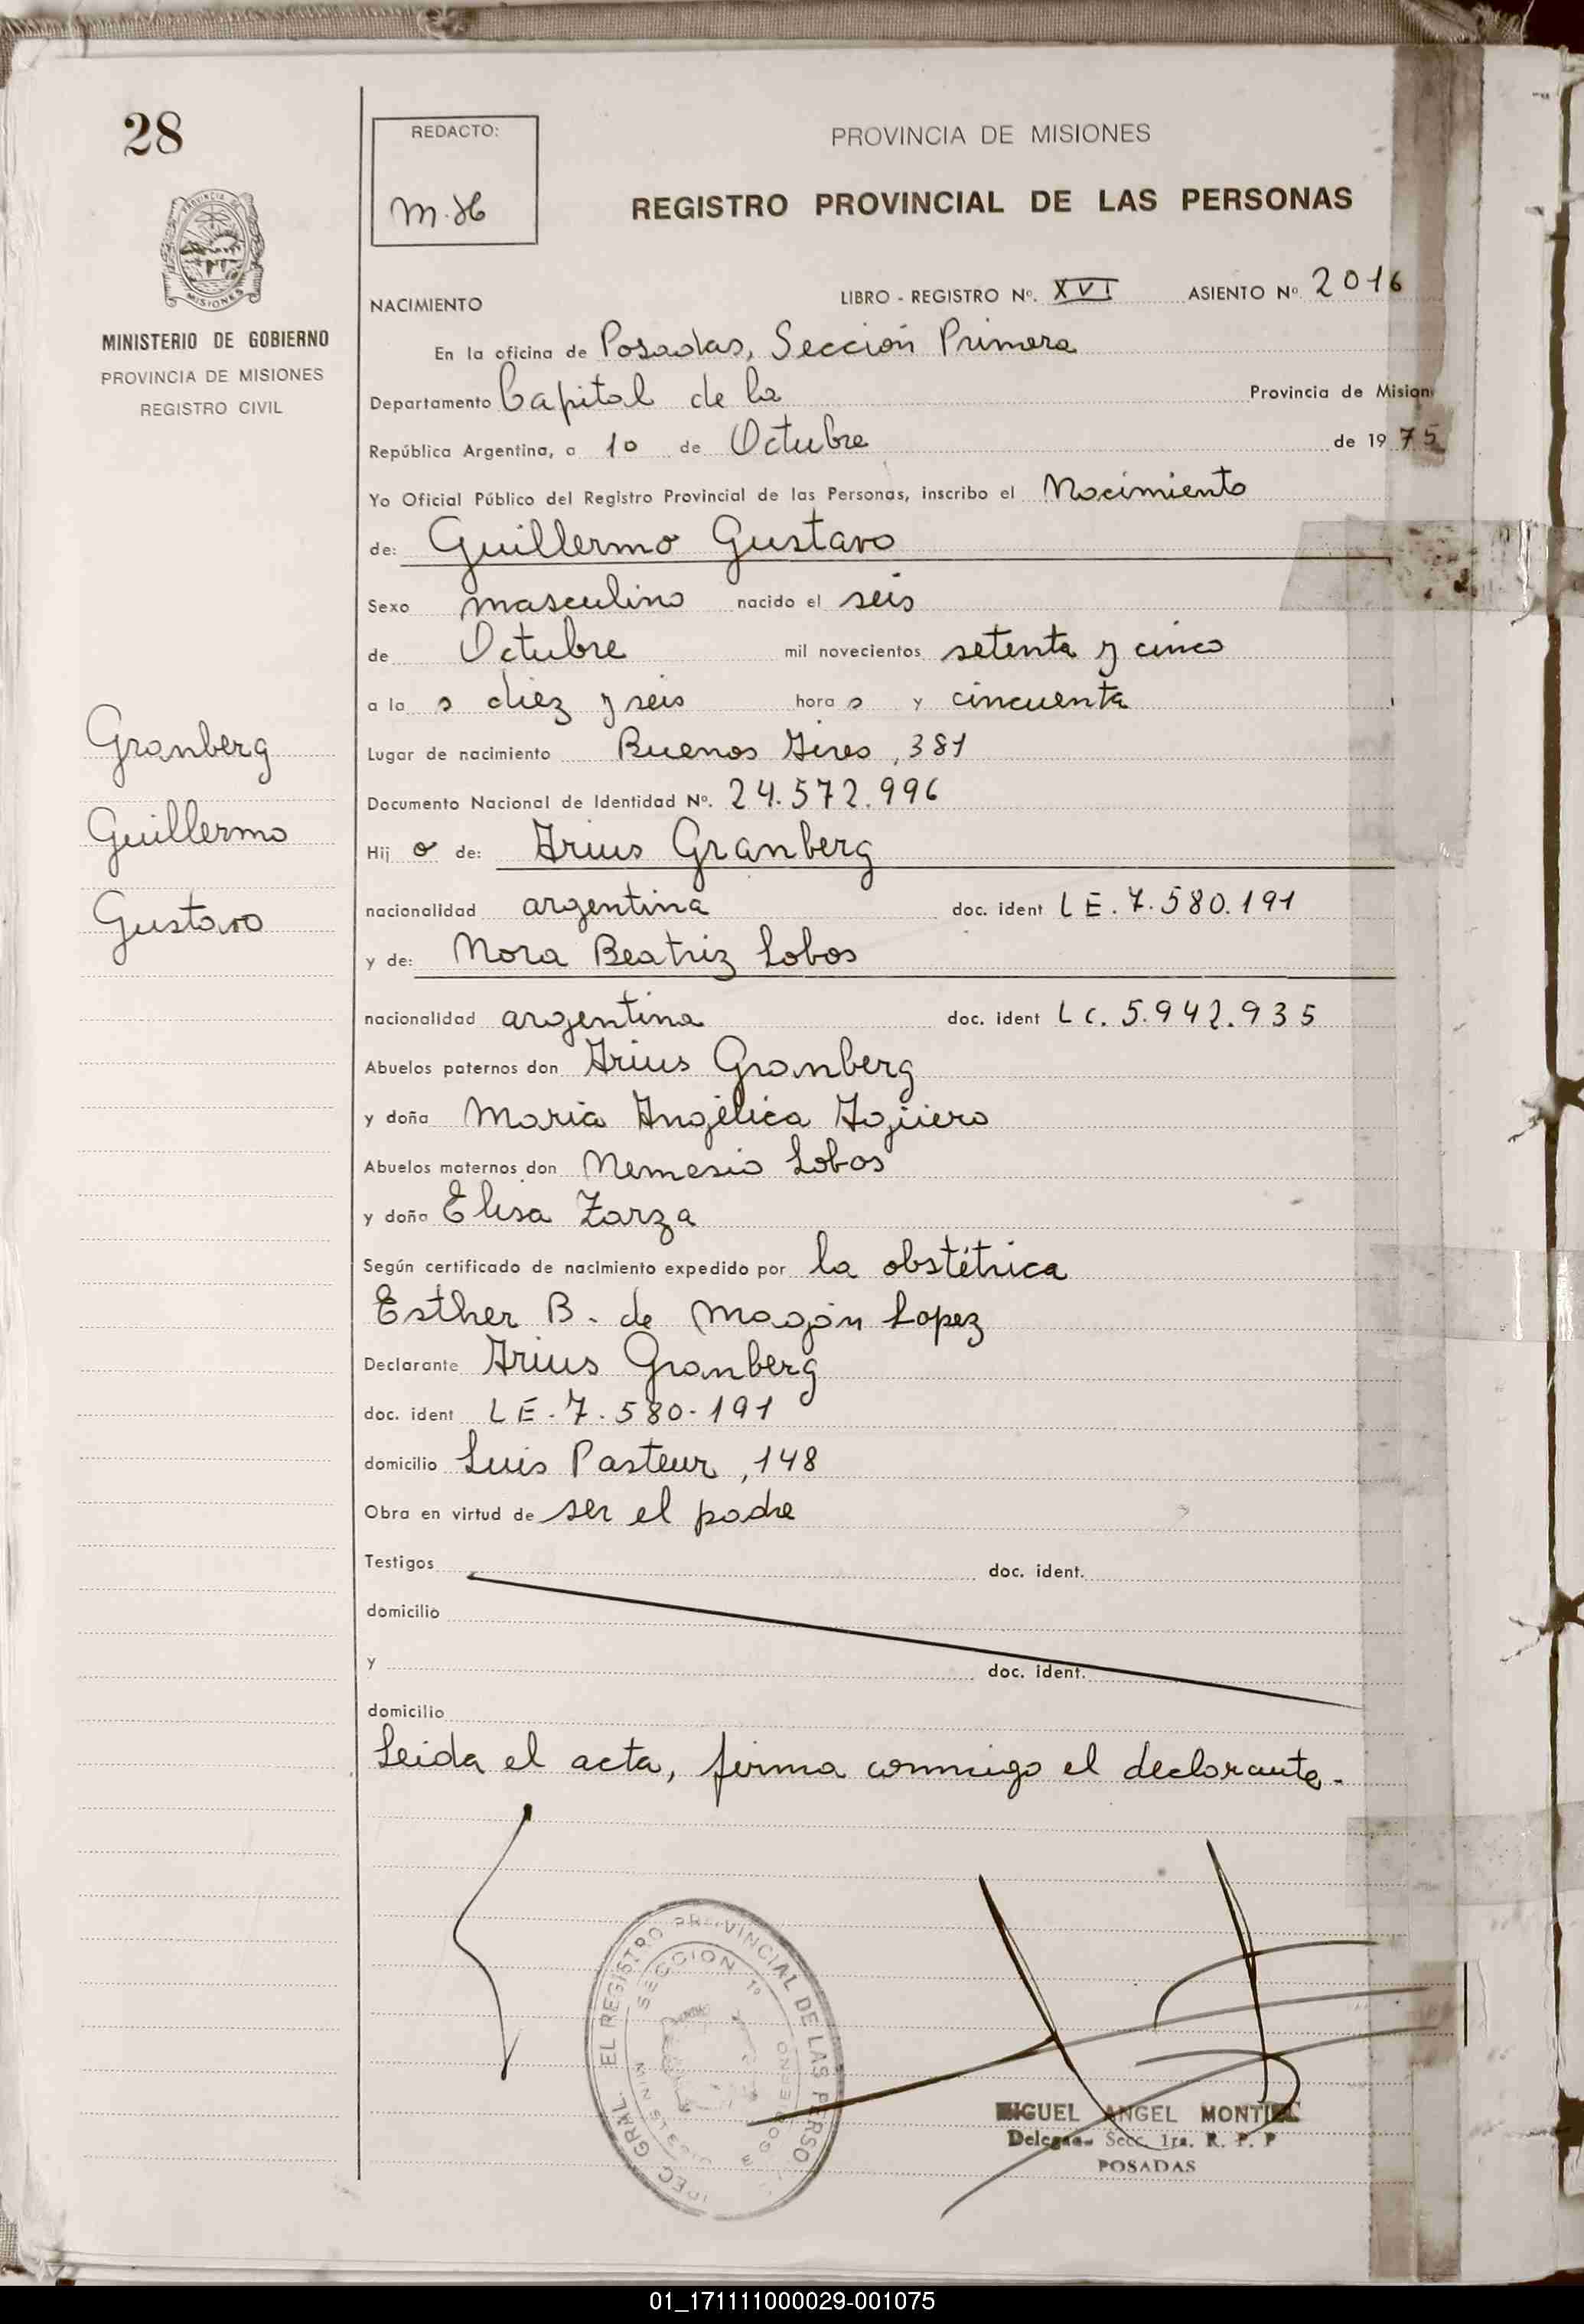 28
REDACTO:
PROVINCIA DE MISIONES
REGISTRO PROVINCIAL DE LAS PERSONAS
MISIONES
MINISTERIO DE GOBIERNO
PROVINCIA DE MISIONES
REGISTRO CIVIL
NACIMIENTO LIBRO - REGISTRO Nº. XVI ASIENTO Nº 2016
En la oficina de Posadas, Sección Primera
Departamento Capital de la Provincia de Mision
República Argentina, a 10 de Octubre de 1975
Yo Oficial Público del Registro Provincial de las Personas, inscribo el Nacimiento
de: Guillermo Gustavo
Sexo masculino nacido el seis
de Octubre mil novecientos setenta y cinco
a la s diez y seis hora s y cincuenta
Granberg
Guillermo
Gustavo
Lugar de nacimiento Buenos Aires, 381
Documento Nacional de Identidad Nº. 24.572.996
Hij o de: Arius Granberg
nacionalidad argentina doc. ident LE. 7.580.191
y de: Nora Beatriz Lobos
nacionalidad argentina doc. ident LC. 5.942.935
Abuelos paternos don Arius Granberg
y doña Maria Angélica Agüero
Abuelos maternos don Nemesio Lobos
y doña Elisa Zarza
Según certificado de nacimiento expedido por la obstétrica
Esther B. de Magán Lopez
Declarante Arius Granberg
doc. ident LE-7.580-191
domicilio Luis Pasteur, 148
Obra en virtud de ser el padre
Testigos doc. ident.
domicilio
y doc. ident.
domicilio
Leida el acta, firma conmigo el declarante.
EL REGISTRO PROVINCIAL DE LAS PERSO
SECCION 1º
GRAL.
MIGUEL ANGEL MONTIEL
Delegado Secc. 1ra. R. P. P
POSADAS
01_171111000029-001075